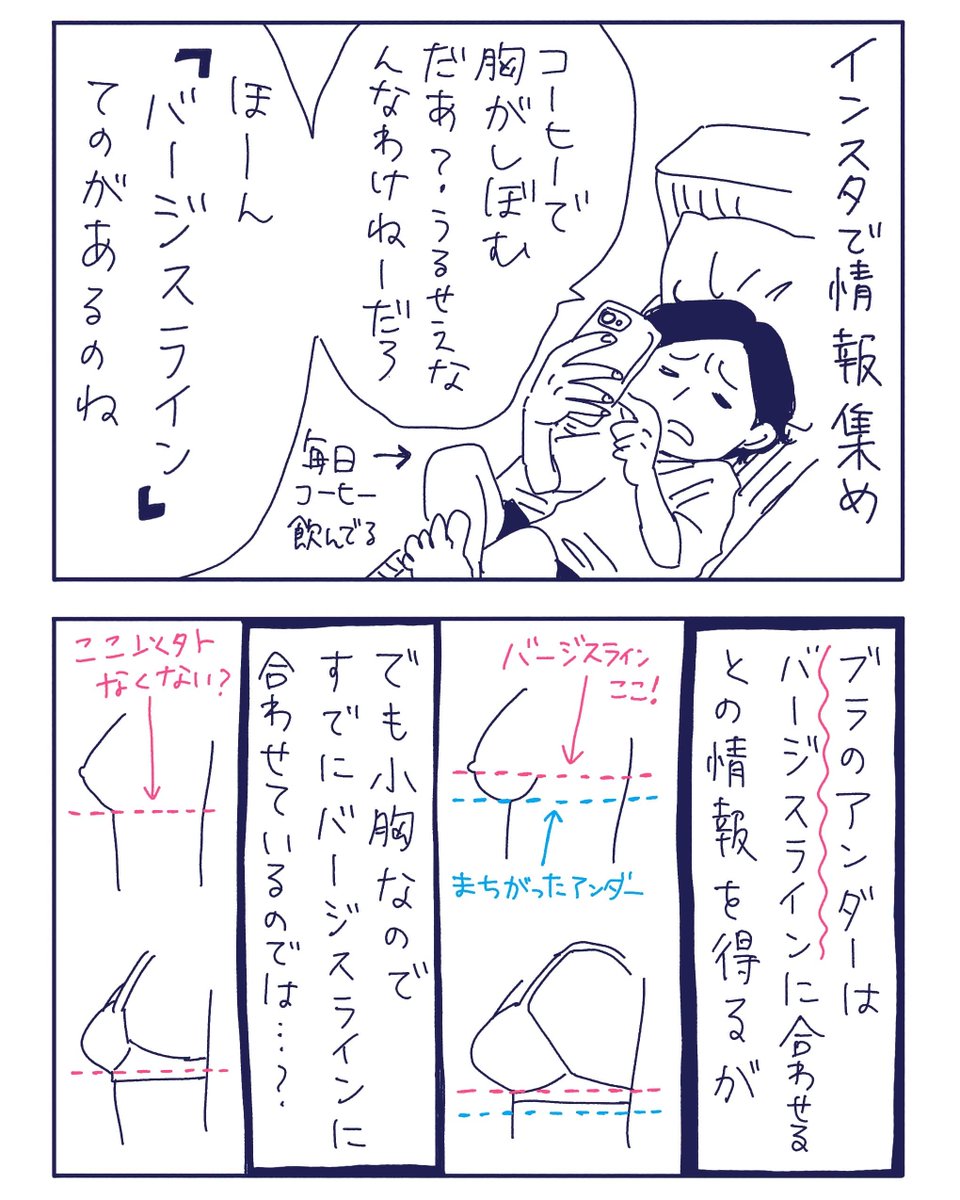 インスタで情報集め
コーヒーで
胸がしぼむ
だあ？・うるせえな
んなわけねーだろ
毎日
コーヒー
飲んでる
ほーん
『バージスライン』
てのがあるのね
ブラのアンダーは
バージスラインに合わせる
との情報を得るが
バージスライン
ここ！
まちがったアンダー
でも小胸なので
すでにバージスラインに
合わせているのでは…？
ここ以外
なくない？